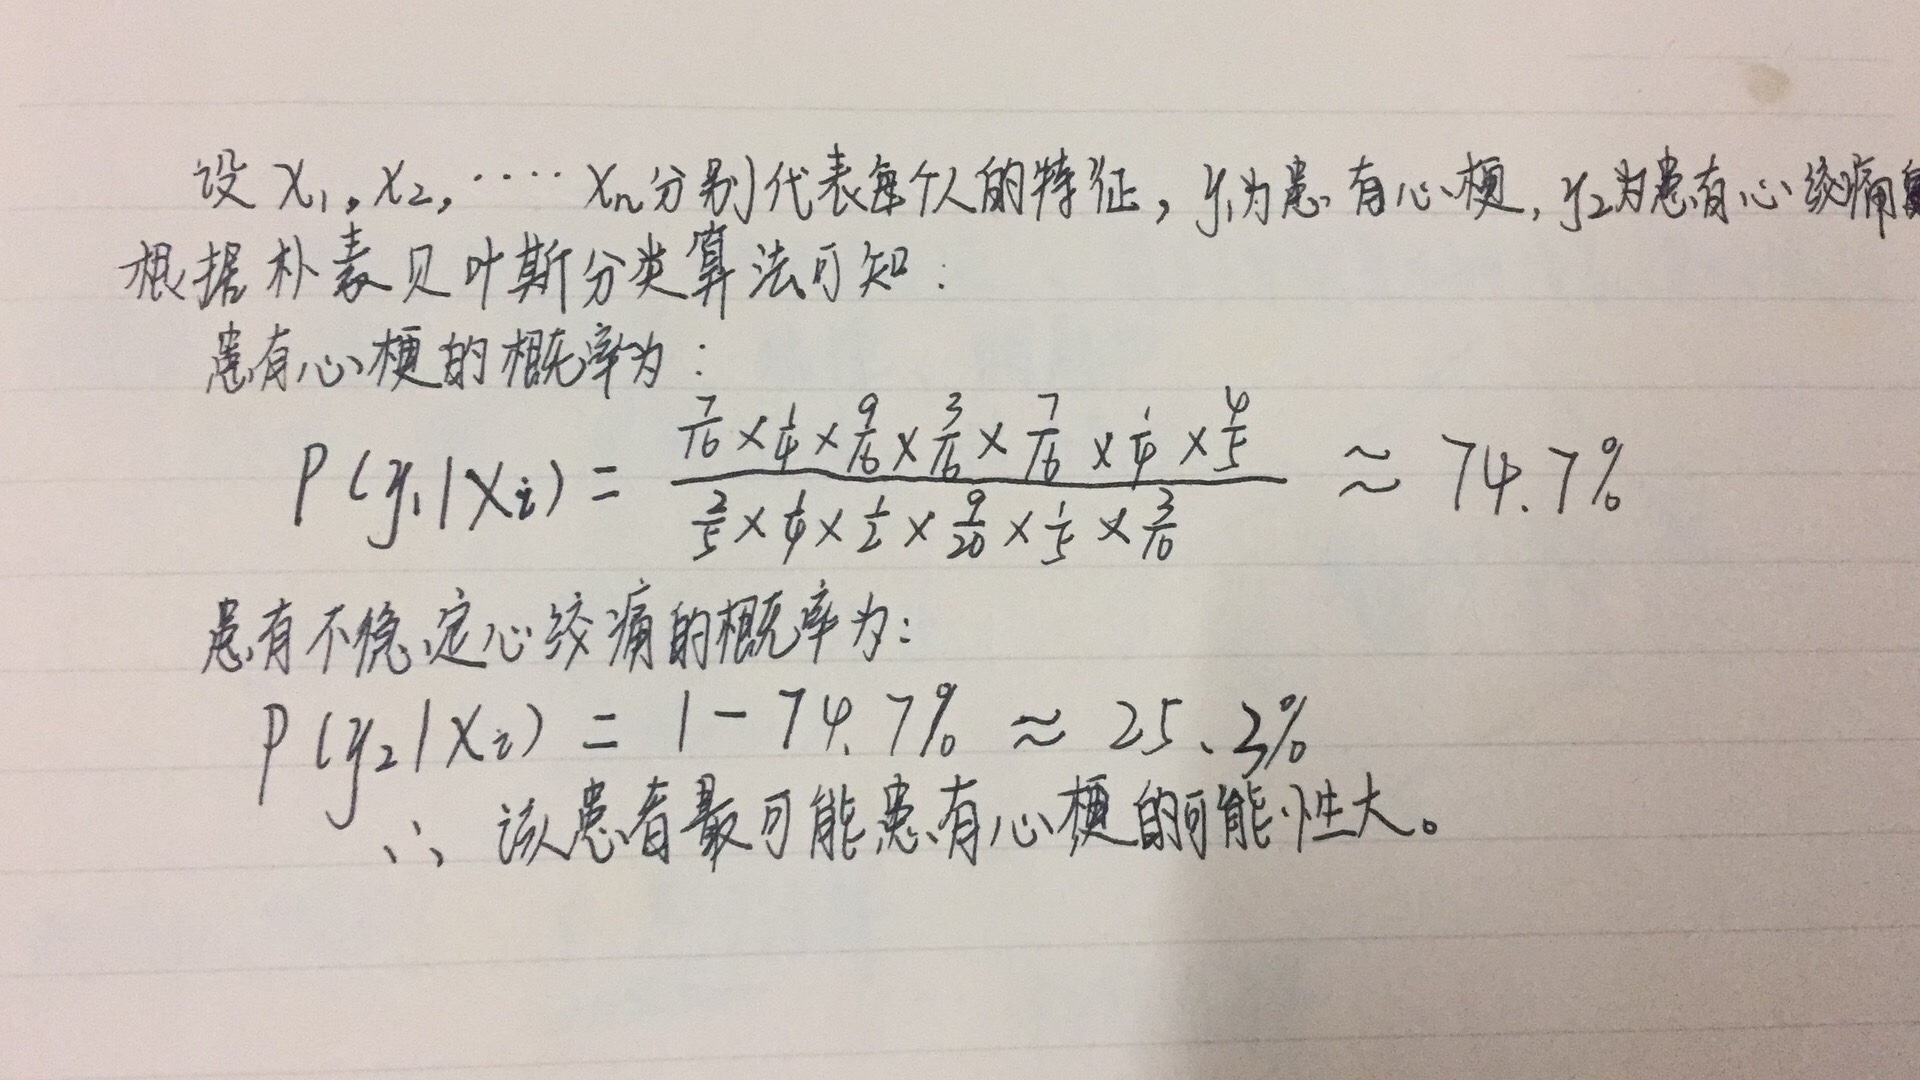 设 x₁, x₂, ····· xₙ 分别代表每个人的特征, y₁为患有心梗, y₂为患有心绞痛
根据朴素贝叶斯分类算法可知:
患有心梗的概率为:
P(y₁|xᵢ) = (7/16 × 1/4 × 9/16 × 3/16 × 7/16 × 1/4 × 4/5) / (2/5 × 1/4 × 1/2 × 9/20 × 1/5 × 3/10) ≈ 74.7%
患有不稳定心绞痛的概率为:
P(y₂|xᵢ) = 1 - 74.7% ≈ 25.3%
∴ 该患者最可能患有心梗的可能性大。